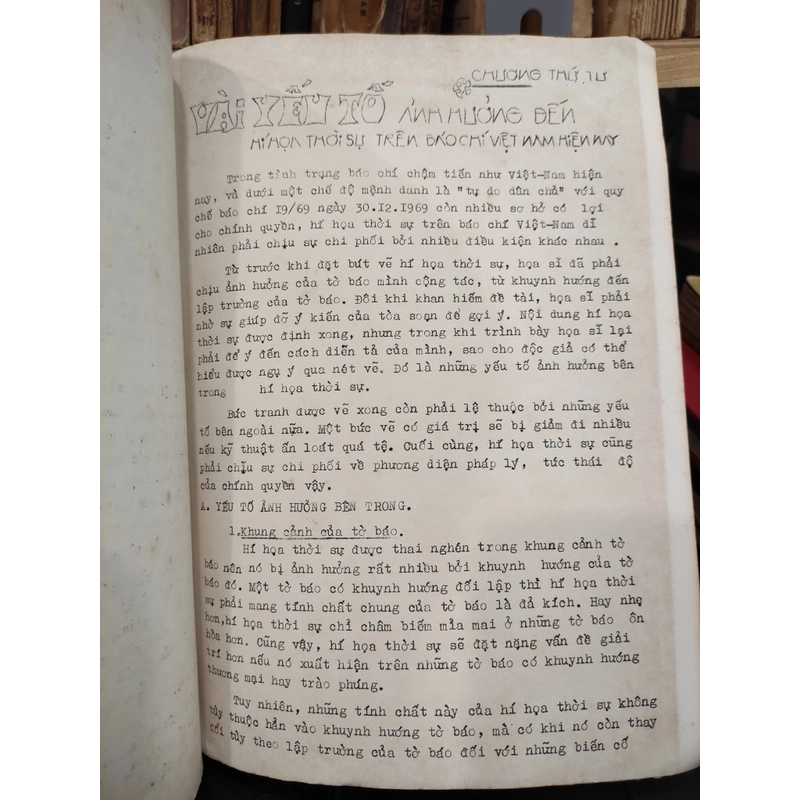 CHƯƠNG THỨ TƯ
VÀI YẾU TỐ ẢNH HƯỞNG ĐẾN
HÍ HỌA THỜI SỰ TRÊN BÁO CHÍ VIỆT NAM HIỆN NAY
Trong tình trạng báo chí chậm tiến như Việt-Nam hiện
nay, và dưới một chế độ mệnh danh là "tự do dân chủ" với quy
chế báo chí 19/69 ngày 30.12.1969 còn nhiều sơ hở có lợi
cho chính quyền, hí họa thời sự trên báo chí Việt-Nam dĩ
nhiên phải chịu sự chi phối bởi nhiều điều kiện khác nhau .
Từ trước khi đặt bút vẽ hí họa thời sự, họa sĩ đã phải
chịu ảnh hưởng của tờ báo mình cộng tác, từ khuynh hướng đến
lập trường của tờ báo. Đôi khi khan hiếm đề tài, họa sĩ phải
nhờ sự giúp đỡ ý kiến của tòa soạn để gợi ý. Nội dung hí họa
thời sự được định xong, nhưng trong khi trình bày họa sĩ lại
phải để ý đến cách diễn tả của mình, sao cho độc giả có thể
hiểu được ngụ ý qua nét vẽ. Đó là những yếu tố ảnh hưởng bên
trong hí họa thời sự.
Bức tranh được vẽ xong còn phải lệ thuộc bởi những yếu
tố bên ngoài nữa. Một bức vẽ có giá trị sẽ bị giảm đi nhiều
nếu kỹ thuật ấn loát quá tệ. Cuối cùng, hí họa thời sự cũng
phải chịu sự chi phối về phương diện pháp lý, tức thái độ
của chính quyền vậy.
A. YẾU TỐ ẢNH HƯỞNG BÊN TRONG.
1.Khung cảnh của tờ báo.
Hí họa thời sự được thai nghén trong khung cảnh tờ
báo nên nó bị ảnh hưởng rất nhiều bởi khuynh hướng của tờ
báo đó. Một tờ báo có khuynh hướng đối lập thì hí họa thời
sự phải mang tính chất chung của tờ báo là đả kích. Hay nhẹ
hơn,hí họa thời sự chỉ châm biếm mỉa mai ở những tờ báo ôn
hòa hơn. Cũng vậy, hí họa thời sự sẽ đặt nặng vấn đề giải
trí hơn nếu nó xuất hiện trên những tờ báo có khuynh hướng
thương mại hay trào phúng.
Tuy nhiên, những tính chất này của hí họa thời sự không
tùy thuộc hẳn vào khuynh hướng tờ báo, mà có khi nó còn thay
đổi tùy theo lập trường của tờ báo đối với những biến cố